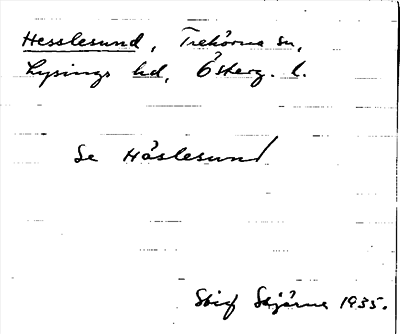 Hesslesund, Trehörna sn,
Lysings hd, Österg. l.
Se Håslesund
Stig Skjörne 1935.